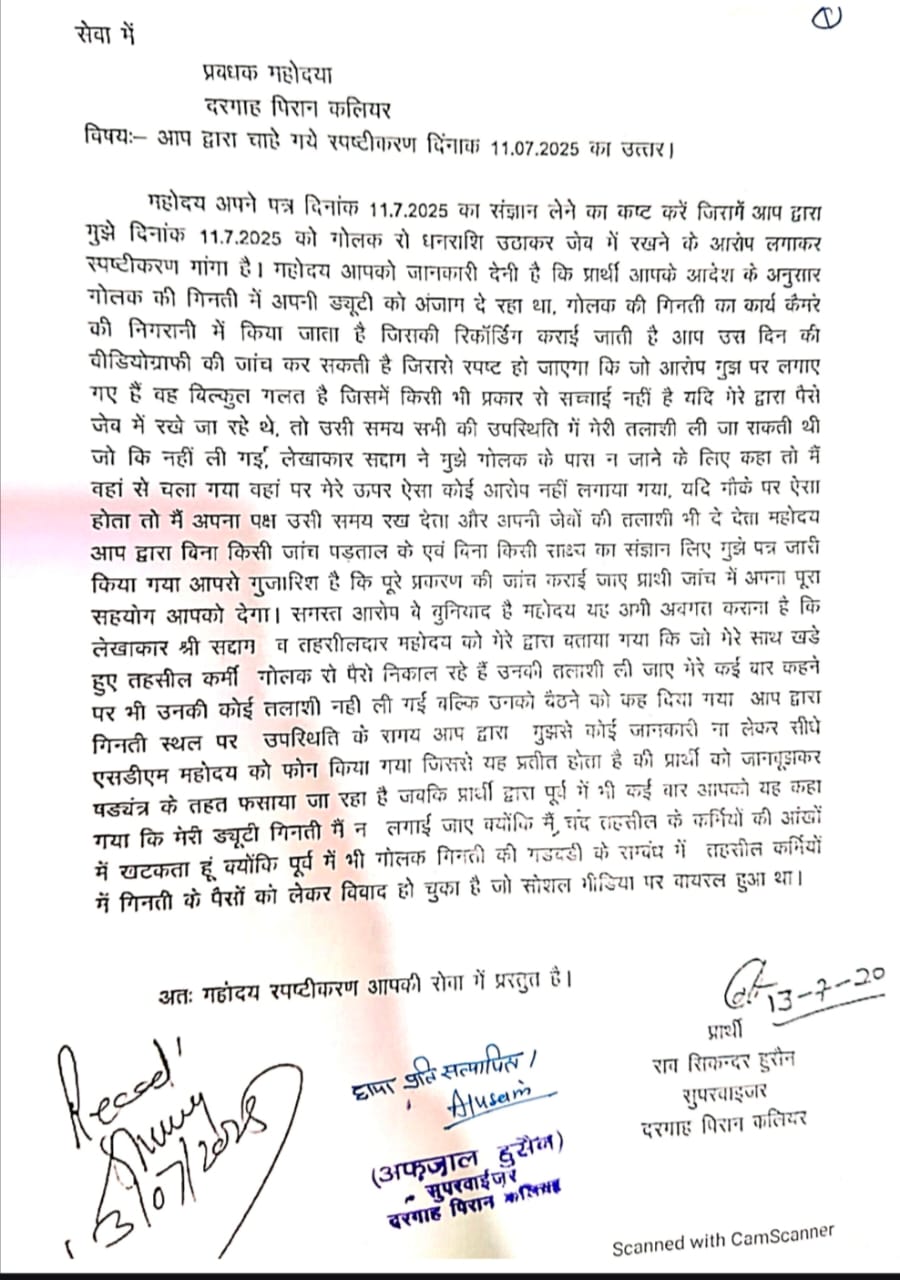 1
सेवा में
प्रवधक महोदया
दरगाह पिरान कलियर
विषयः– आप द्वारा चाहे गये स्पष्टीकरण दिंनाक 11.07.2025 का उत्तर।
महोदय अपने पत्र दिनांक 11.7.2025 का संज्ञान लेने का कष्ट करें जिसमें आप द्वारा
मुझे दिनांक 11.7.2025 को गोलक से धनराशि उठाकर जेब में रखने के आरोप लगाकर
स्पष्टीकरण मांगा है। महोदय आपको जानकारी देनी है कि प्रार्थी आपके आदेश के अनुसार
गोलक की गिनती में अपनी ड्यूटी को अंजाम दे रहा था, गोलक की गिनती का कार्य कैमरे
की निगरानी में किया जाता है जिसकी रिकॉर्डिंग कराई जाती है आप उस दिन की
वीडियोग्राफी की जांच कर सकती है जिससे स्पष्ट हो जाएगा कि जो आरोप मुझ पर लगाए
गए हैं वह बिल्कुल गलत है जिसमें किसी भी प्रकार से सच्चाई नहीं है यदि मेरे द्वारा पैसे
जेब में रखे जा रहे थे, तो उसी समय सभी की उपस्थिति में मेरी तलाशी ली जा सकती थी
जो कि नहीं ली गई, लेखाकार सद्दाम ने मुझे गोलक के पास न जाने के लिए कहा तो मैं
वहां से चला गया वहां पर मेरे ऊपर ऐसा कोई आरोप नहीं लगाया गया, यदि मौके पर ऐसा
होता तो मैं अपना पक्ष उसी समय रख देता और अपनी जेबों की तलाशी भी दे देता महोदय
आप द्वारा बिना किसी जांच पड़ताल के एवं बिना किसी साक्ष्य का संज्ञान लिए मुझे पत्र जारी
किया गया आपसे गुजारिश है कि पूरे प्रकरण की जांच कराई जाए प्राथी जांच में अपना पूरा
सहयोग आपको देगा। समस्त आरोप बे बुनियाद है महोदय यह अभी अवगत कराना है कि
लेखाकार श्री सद्दाम व तहसीलदार महोदय को मेरे द्वारा बताया गया कि जो मेरे साथ खडे
हुए तहसील कर्मी गोलक से पैसे निकाल रहे हैं उनकी तलाशी ली जाए मेरे कई बार कहने
पर भी उनकी कोई तलाशी नही ली गई बल्कि उनको बैठने को कह दिया गया आप द्वारा
गिनती स्थल पर उपस्थिति के समय आप द्वारा मुझसे कोई जानकारी ना लेकर सीधे
एसडीएम महोदय को फोन किया गया जिससे यह प्रतीत होता है की प्रार्थी को जानबूझकर
षड्यंत्र के तहत फसाया जा रहा है जबकि प्रार्थी द्वारा पूर्व में भी कई बार आपको यह कहा
गया कि मेरी ड्यूटी गिनती मैं न लगाई जाए क्योंकि मैं, चंद तहसील के कर्मियों की आंखों
में खटकता हूं क्योंकि पूर्व में भी गोलक गिनती की गडबडी के सम्बंध में तहसील कर्मियों
में गिनती के पैसों को लेकर विवाद हो चुका है जो सोशल मीडिया पर वायरल हुआ था।
अतः महोदय स्पष्टीकरण आपकी सेवा में प्रस्तुत है।
13-7-20
प्रार्थी
राव सिकन्दर हुसैन
सुपरवाइजर
दरगाह पिरान कलियर
छाया प्रति सत्यापित।
(अफ़जाल हुसैन)
सुपरवाईजर
दरगाह पिरान कलियर
13/07/2025
Scanned with CamScanner